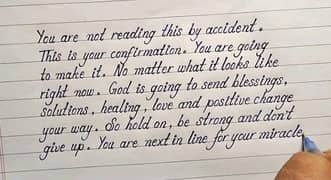 You are not reading this by accident.
This is your confirmation. You are going
to make it. No matter what it looks like
right now. God is going to send blessings,
solutions, healing, love and positive change
your way. So hold on, be strong and don't
give up. You are next in line for your miracle